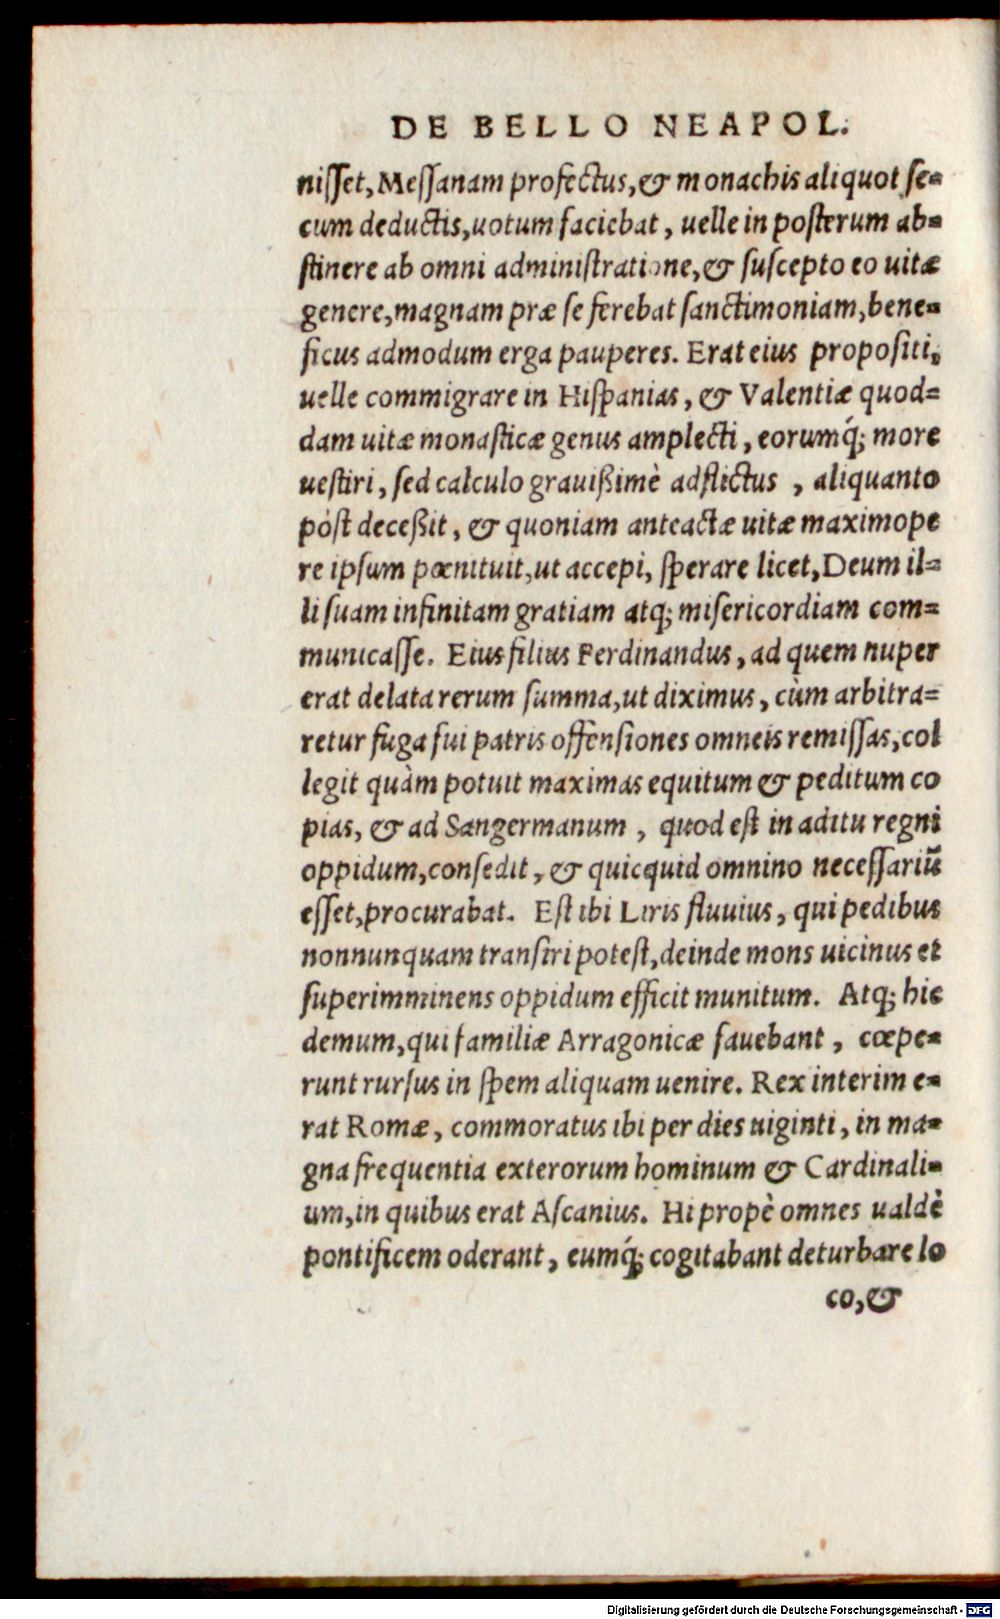 DE BELLO NEAPOL.
niſſet, Meſſanam profectus, & monachis aliquot ſe=
cum deductis, uotum faciebat, uelle in poſterum ab=
ſtinere ab omni adminiſtratione, & ſuſcepto eo uitæ
genere, magnam præ ſe ferebat ſanctimoniam, bene=
ficus admodum erga pauperes. Erat eius propoſiti,
uelle commigrare in Hiſpanias, & Valentiæ quod=
dam uitæ monaſticæ genus amplecti, eorumq́; more
ueſtiri, ſed calculo grauißimè adflictus, aliquanto
pòſt deceßit, & quoniam anteactæ uitæ maximope
re ipſum pœnituit, ut accepi, ſperare licet, Deum il=
li ſuam infinitam gratiam atq; miſericordiam com=
municaſſe. Eius filius Ferdinandus, ad quem nuper
erat delata rerum ſumma, ut diximus, cùm arbitra=
retur fuga ſui patris offenſiones omneis remiſſas, col
legit quàm potuit maximas equitum & peditum co
pias, & ad Sangermanum, quod eſt in aditu regni
oppidum, conſedit, & quicquid omnino neceſſariũ
eſſet, procurabat. Eſt ibi Liris fluuius, qui pedibus
nonnunquam tranſiri poteſt, deinde mons uicinus et
ſuperimminens oppidum efficit munitum. Atq; hic
demum, qui familiæ Arragonicæ fauebant, cœpe=
runt rurſus in ſpem aliquam uenire. Rex interim e=
rat Romæ, commoratus ibi per dies uiginti, in ma=
gna frequentia exterorum hominum & Cardinali=
um, in quibus erat Aſcanius. Hi propè omnes ualdè
pontificem oderant, eumq́; cogitabant deturbare lo
co, &
Digitalisierung gefördert durch die Deutsche Forschungsgemeinschaft - DFG